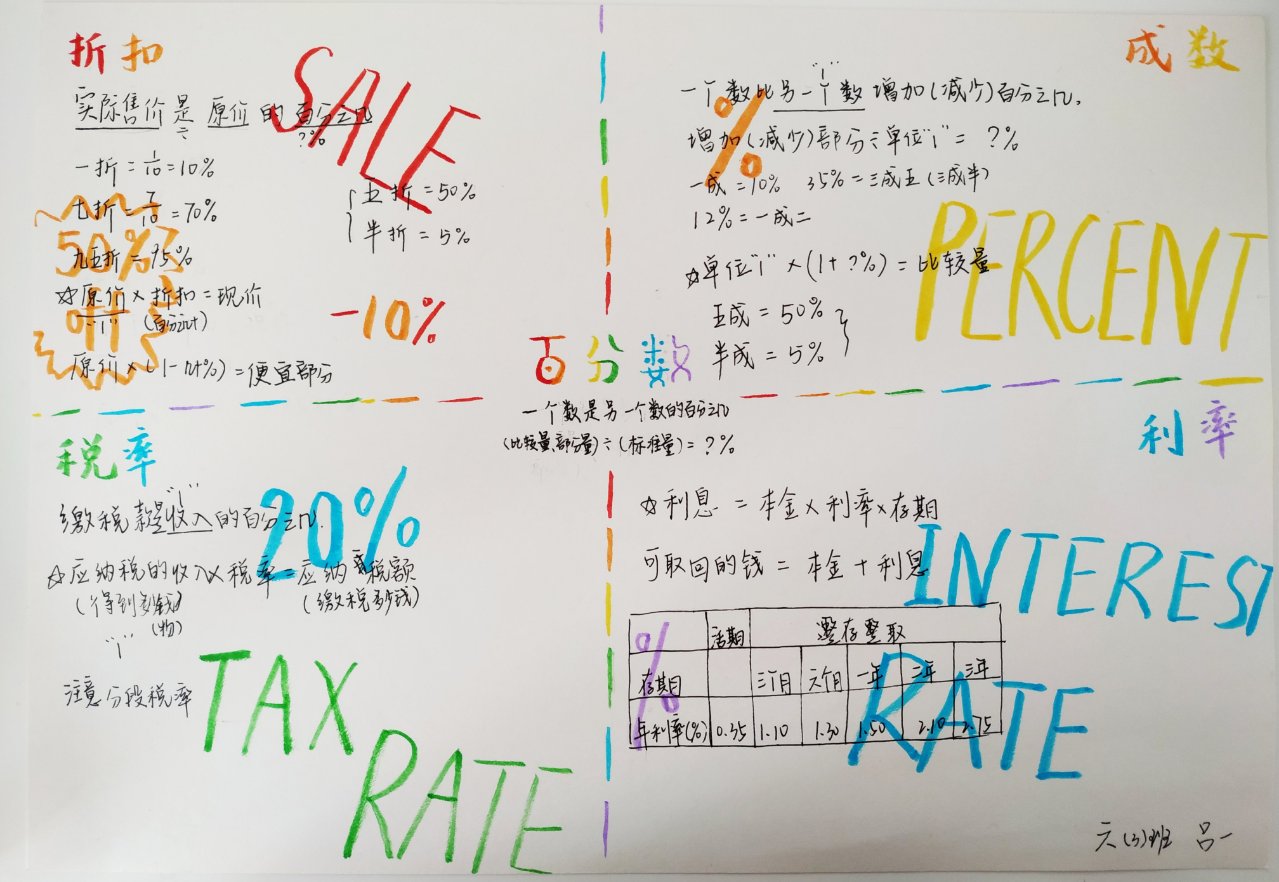 折扣
SALE
实际售价是原价的百分之几
÷ ?%
一折=1/10=10%
七折=7/10=70%
五折=50%
半折=5%
50%
off
九五折=95%
☆原价×折扣=现价
"1" (百分之几十)
-10%
原价×(1-几十%)=便宜部分
成数
"1"
一个数比另一个数增加(减少)百分之几.
%
增加(减少)部分÷单位"1"=?%
一成=10% 35%=三成五(三成半)
12%=一成二
PERCENT
☆单位"1"×(1+?%)=比较量
五成=50%
半成=5%
百分数
一个数是另一个数的百分之几
(比较量,部分量)÷(标准量)=?%
税率
20%
"1"
缴税款是收入的百分之几.
☆应纳税的收入×税率=应纳税额
(得到多少钱) (缴税多少钱)
(物)
"1"
注意分段税率
TAX
RATE
利率
☆利息=本金×利率×存期
可取回的钱=本金+利息
INTEREST
RATE
%
活期 整存整取
存期 三个月 六个月 一年 二年 三年
年利率(%) 0.35 1.10 1.30 1.50 2.10 2.75
六(3)班 吕一